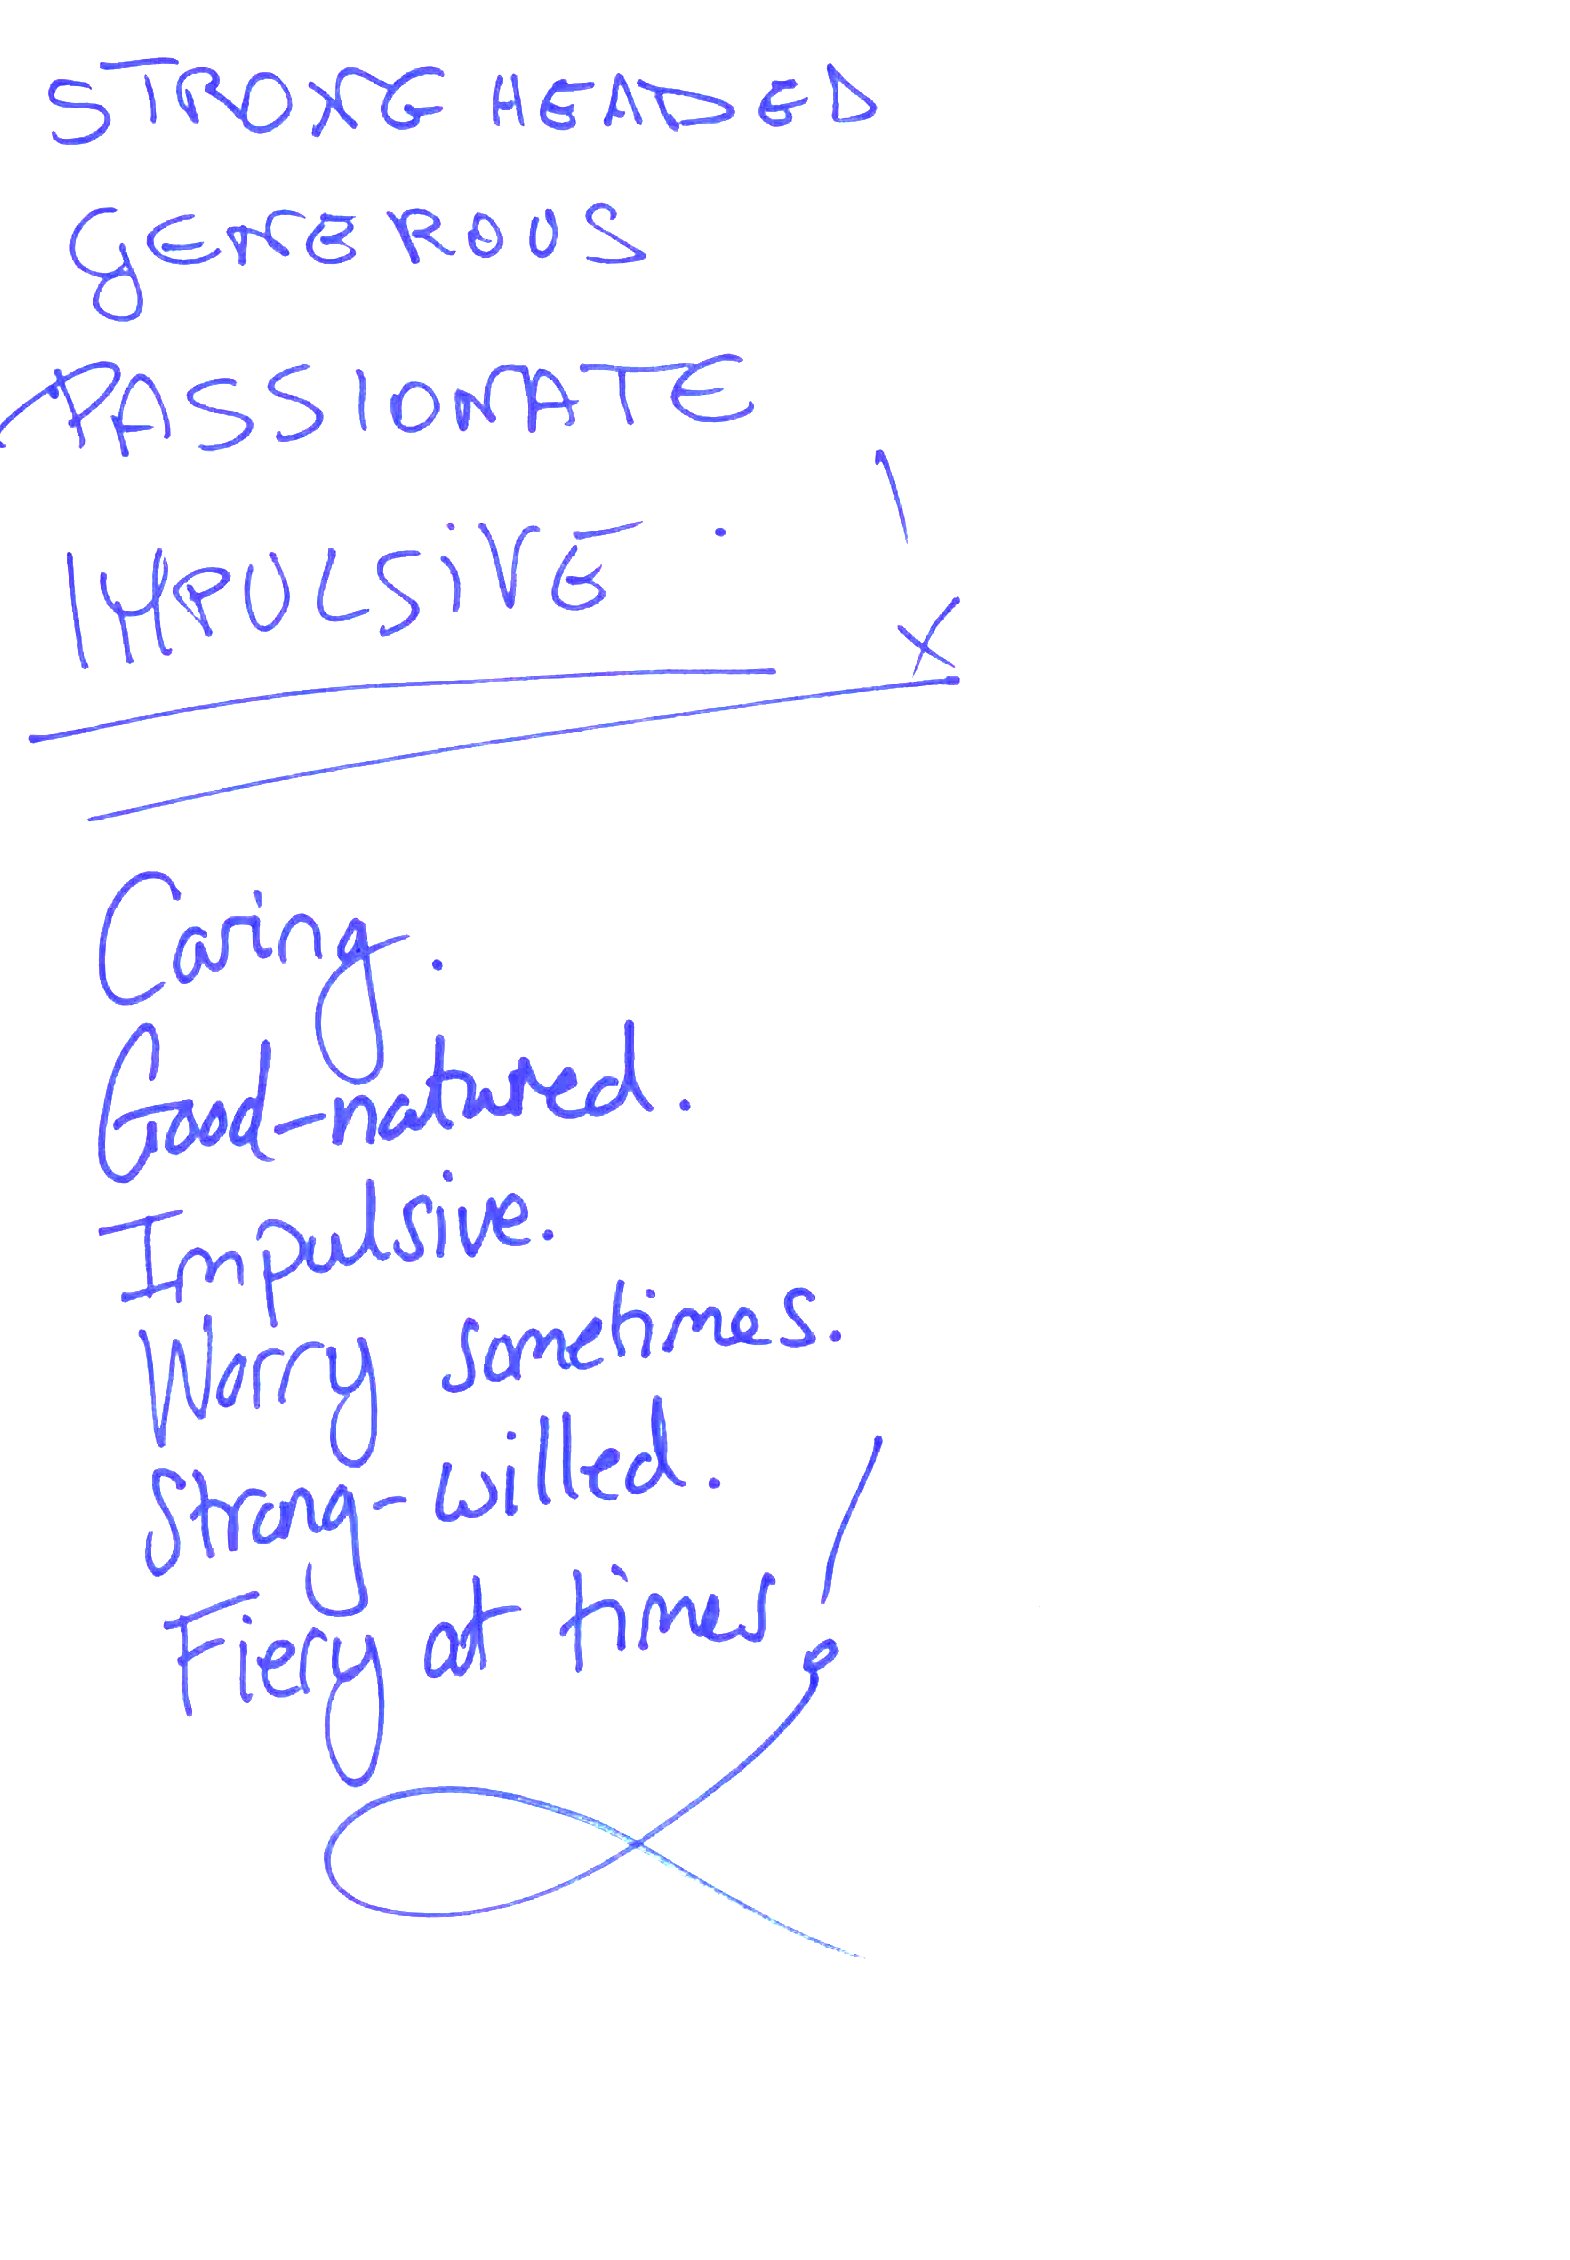 STRONG HEADED
GENEROUS
PASSIONATE
IMPULSiVE. !
x
Caring.
Good-natured.
Impulsive.
Worry sometimes.
Strong-willed.
Fiery at times!